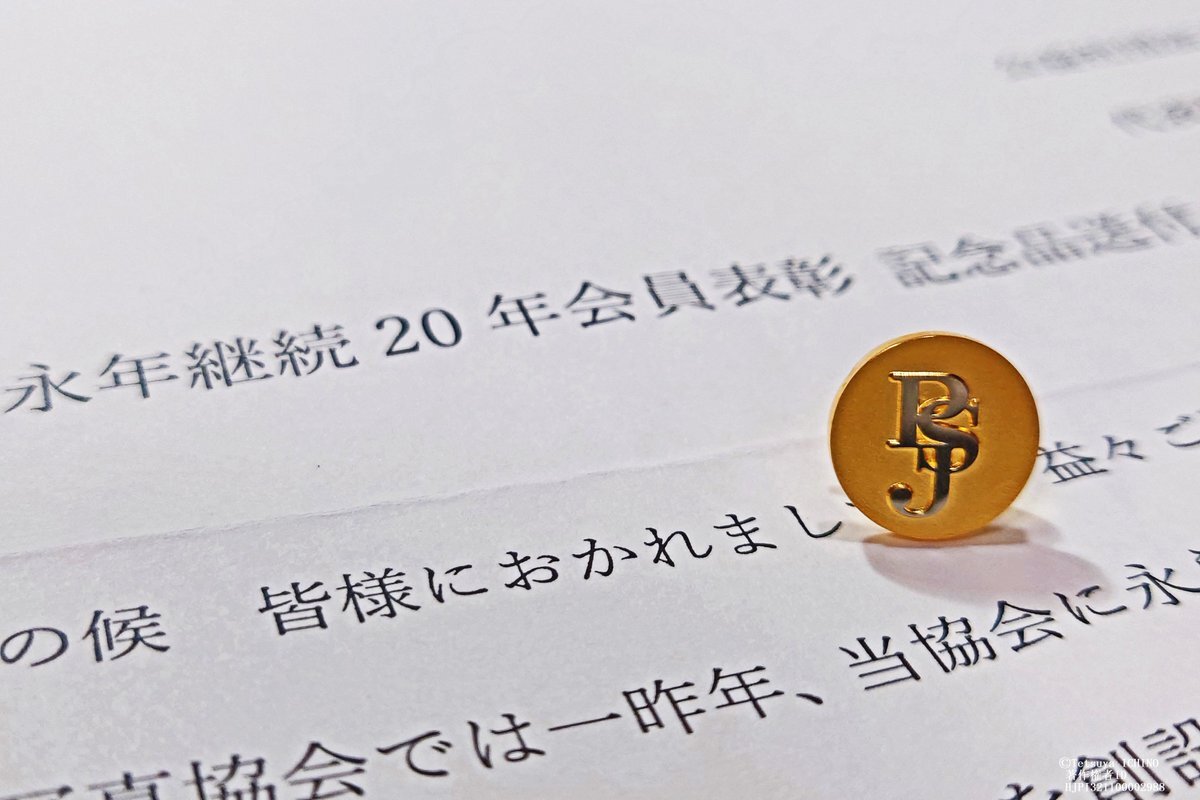 永年継続 20 年会員表彰 記念品送付
の候　皆様におかれまし
益々ご
写真協会では一昨年、当協会に永
創設
PSJ
©Tetsuya ICHINO
著作権者ID
HJPI321100002988